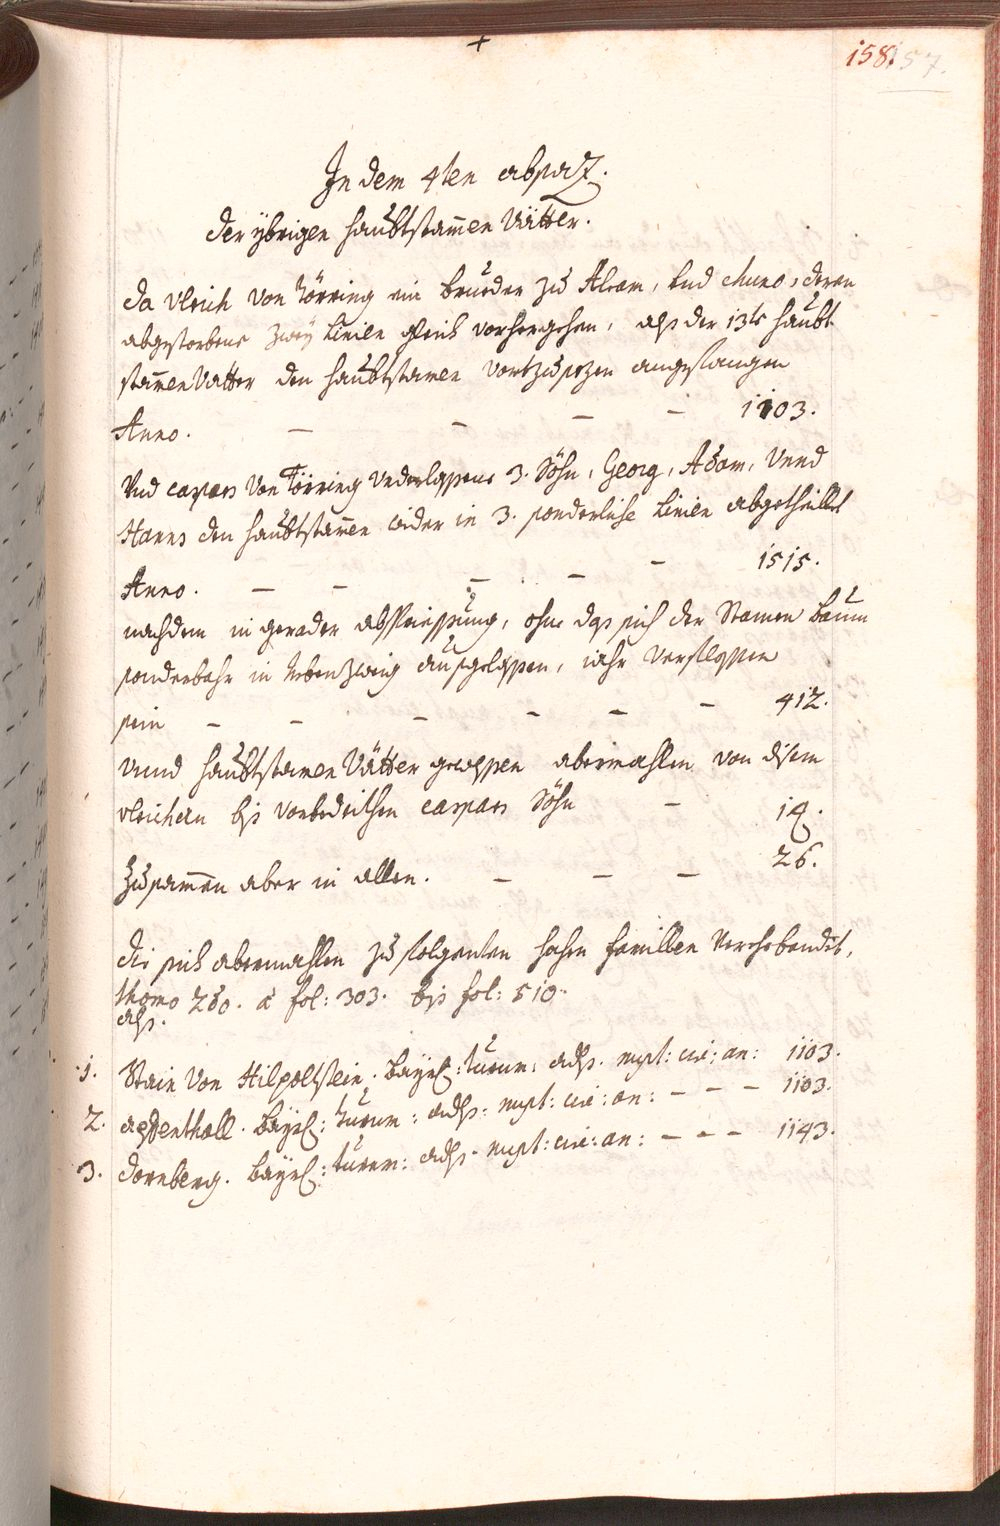 +
158. 157.
In dem 4ten absaz.
der ybrigen haubtstammen Vätter.
da Vlrich von Törring ein bruеder zu Alram, vnd chuno, deren
abgestorbene zwey Linien gleich vorhergehen, alß der 13te haubt
stammenVatter den haubtstamen vortzusezen angefangen
Anno. — — — — 1103.
Vnd caspars von Törring vnderlassene 3. Söhn, Georg, Adam, Vnnd
Hanns den haubtstammen wider in 3. sonderliche Linien abgetheillt
Anno. — — — — — 1515.
nachdem in gerader absteigung, ohne das sich der Stamen baum
sonderbahr in neben zweig außgelassen, iahr verflossen
sein — — — — — — 412.
vnnd haubtstamen Vätter gewessen abermahlen von disem
vlrichen bis vorbedeithen caspars Söhn — 14.
Zusammen aber in allen. — — — 26.
die sich abermahlen zu folgenten hochen familien verehebandet,
thomo 2do. a fol: 303. bis fol: 510.
alß.
1. Stain von Hilpoltstein. bayrl: turum: adl. nupt: cir: an: 1103.
2. assenthall. bayrl: turum: adl: nupt: cir: an: — — — 1103.
3. dornberg. bayrl: turum: adl. nupt: cir: an: — — — 1143.